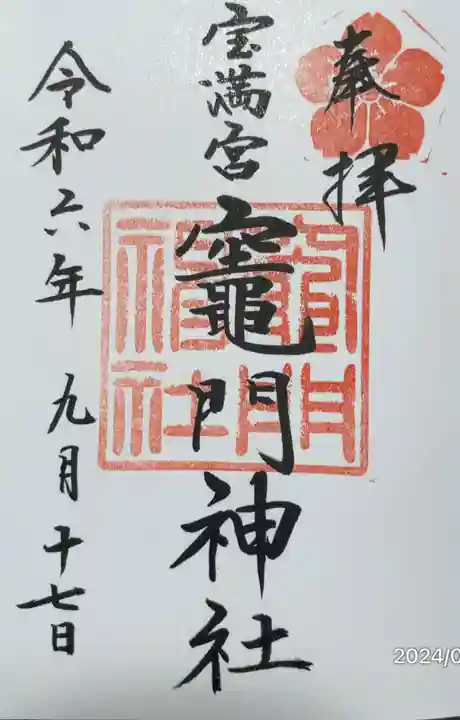 奉拝
宝満宮
竈門神社
令和六年九月十七日
竈門神社
2024/0